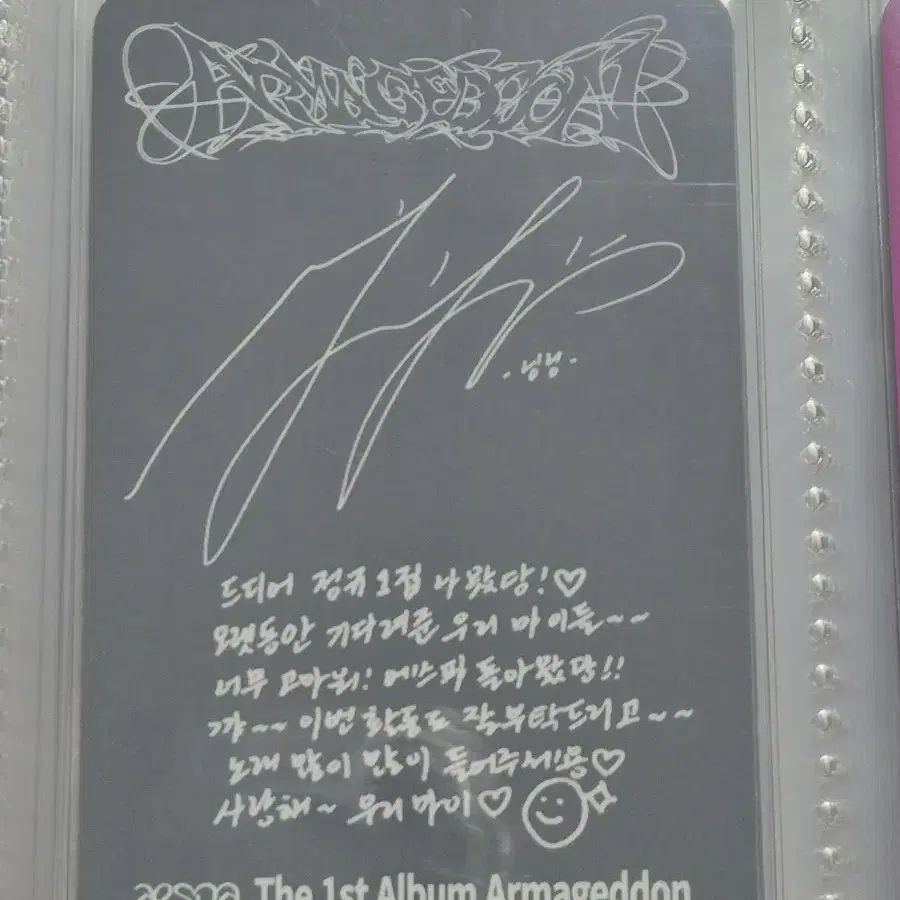 ARMAGEDDON
- 닝닝 -
드디어 정규 1집 나왔당!♡
오랫동안 기다려준 우리 마이들~~
너무 고마워! 에스파 돌아왔당!!
꺄~~ 이번 활동도 잘부탁드리고~~
노래 많이 많이 들어주세용♡
사랑해~ 우리 마이♡
aespa The 1st Album Armageddon